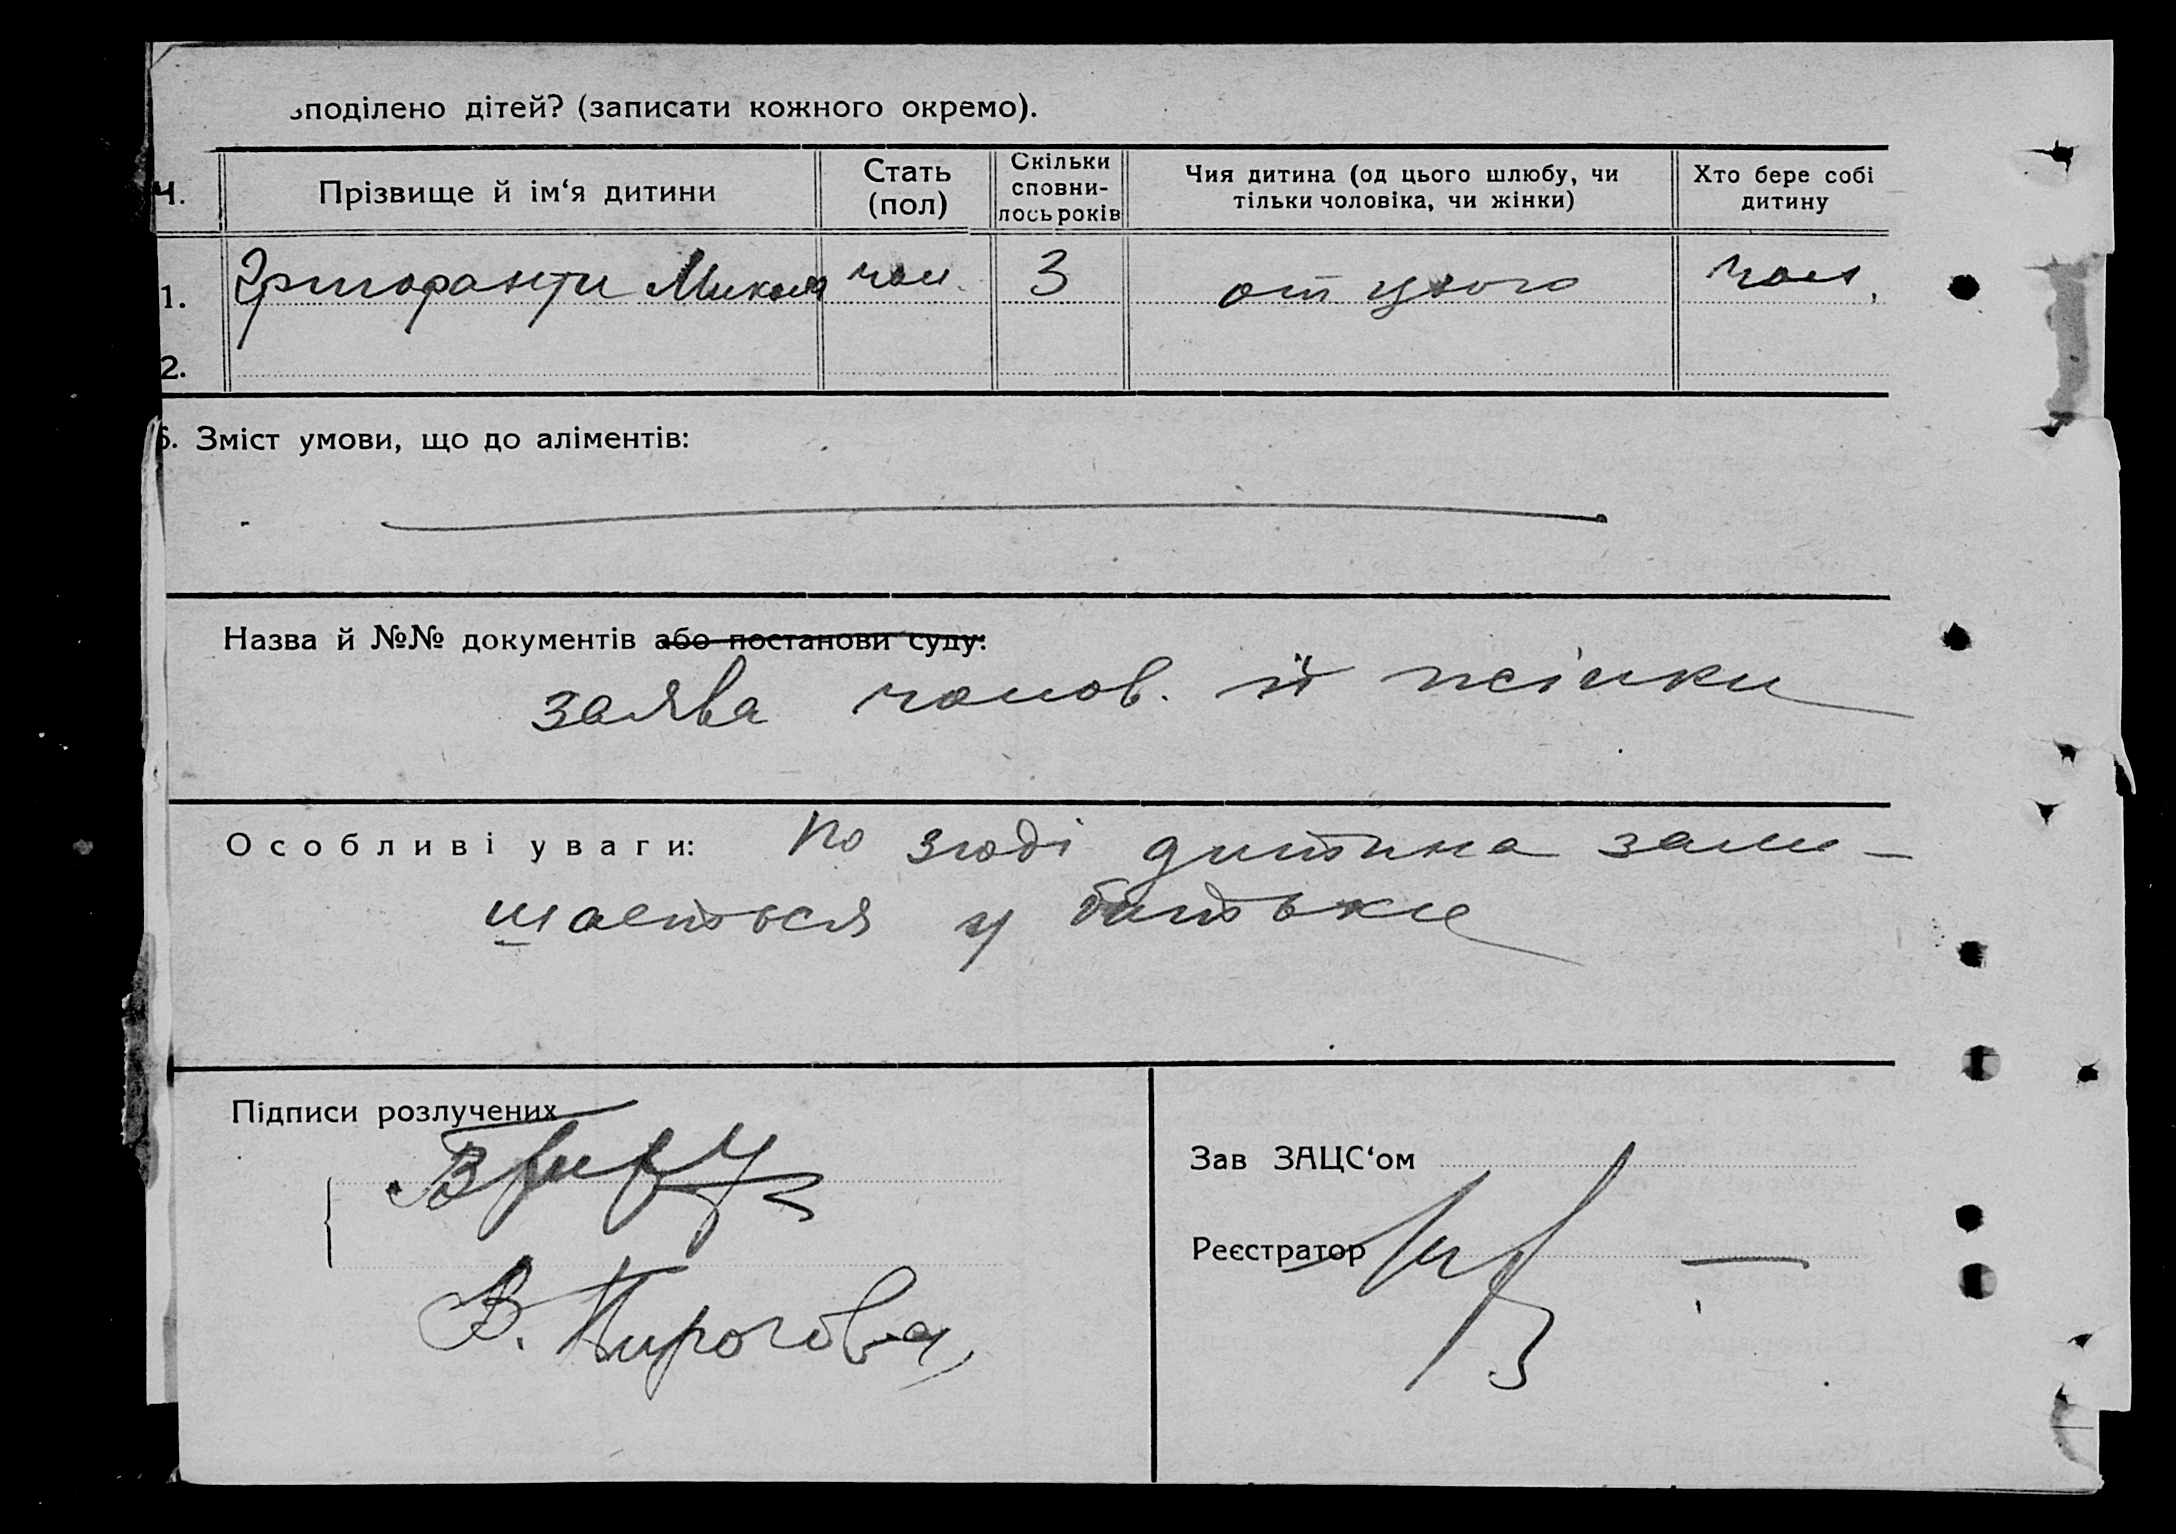 зподілено дітей? (записати кожного окремо).
Ч. Прізвище й ім‘я дитини Стать (пол) Скільки сповни-лось років Чия дитина (од цього шлюбу, чи тільки чоловіка, чи жінки) Хто бере собі дитину
1. Микола чол. 3 от цього чол.
2.
6. Зміст умови, що до аліментів:
Назва й №№ документів або постанови суду:
заява чолов. й жінки
Особливі уваги: по згоді дитина зали-
шається у батька
Підписи розлучених
Зав ЗАЦС‘ом
Реєстратор
В. Пирогова